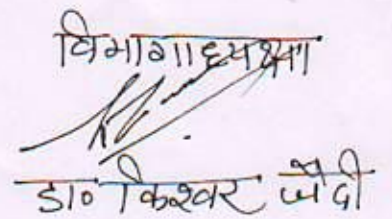 विभागाध्यक्षा
डा० किश्वर जैदी